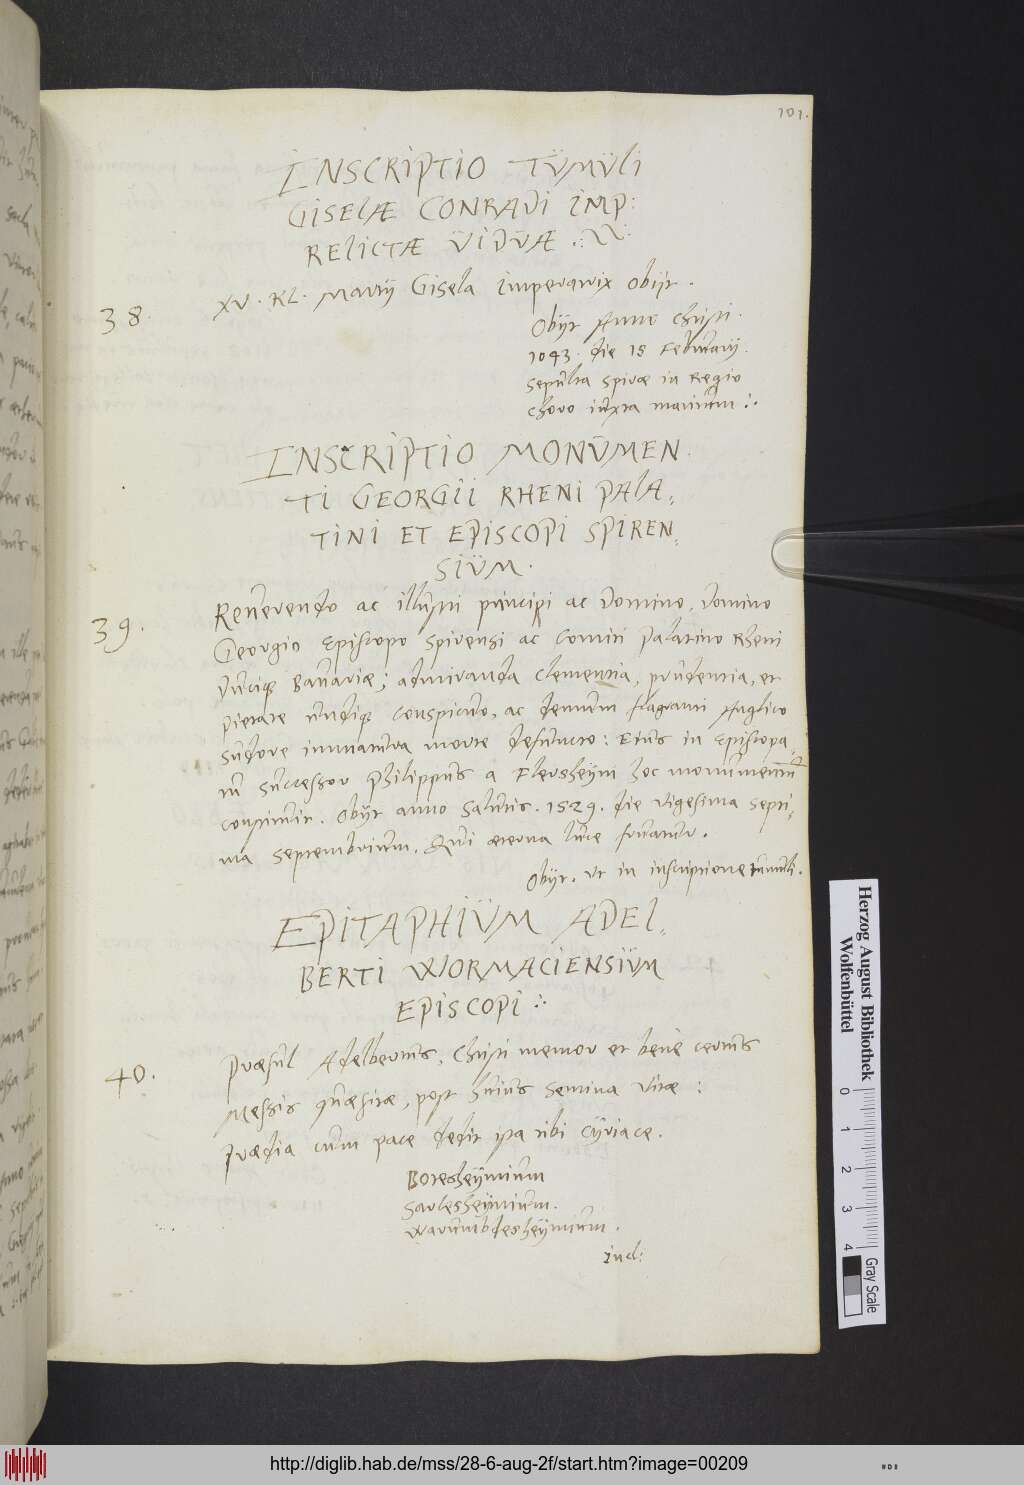 101.
INSCRIPTIO TŪMŪLI
GISELÆ CONRADI IMP:
RELICTÆ VIDŪÆ
38.
XV. KL. Martij Gisela Imperatrix Obijt.
Obijt Anno Christi.
1043. die 15 Februarij.
Sepulta Spiræ in Regio
Choro iuxta maritum
INSCRIPTIO MONŪMEN
TI GEORGII RHENI PALA,
TINI ET EPISCOPI SPIREN,
SIŪM.
39.
Reverendo ac illustri principi ac Domino, Domino
Georgio Episcopo Spirensi ac Comiti Palatino Rheni
Duciq Bavariæ; admiranda clementia, prudentia, et
pietate undiq conspicuo, ac demum flagranti Anglico
sudore immatura morte defuncto: Eius in Episcopa,
tu successor Philippus a Flersheijm hoc monumentum
construxit. Obijt anno Salutis. 1529. die vigesima septi,
ma septembrium. Qui æterna luce fruatur.
Obijt. Ut in inscriptione tumuli.
EPITAPHIŪM ADEL,
BERTI WORMACIENSIŪM
EPISCOPI
40.
Præsul Adelbertus, Christi memor et bene certus
Messis quæsitæ, post huius semina vitæ:
Prædia cum pace dedit ista tibi Cijriace.
Boresheijmium
Sarlesheijmium.
Warumbdesheijmium.
Incl:
Herzog August Bibliothek
Wolfenbüttel
0 1 2 3 4
Gray Scale
http://diglib.hab.de/mss/28-6-aug-2f/start.htm?image=00209